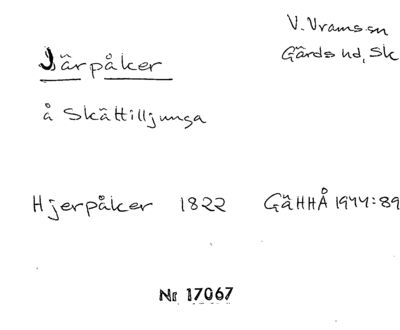 V. Vrams sn
Gärds hd, Sk
Järpåker
å Skättilljunga
Hjerpåker 1822 GäHHÅ 1944:89
Nr 17067